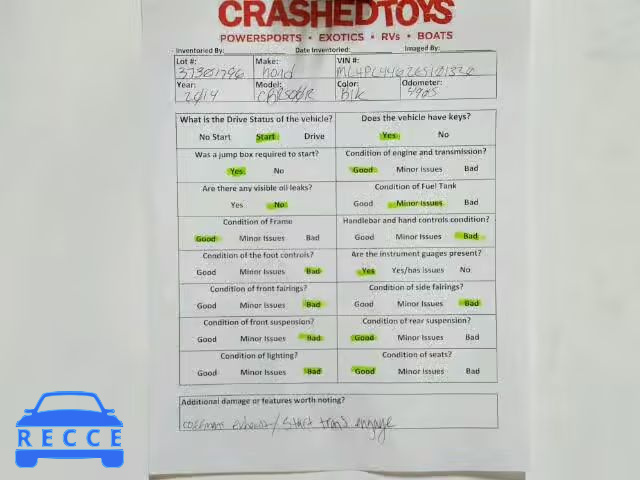 CRASHEDTOYS
POWERSPORTS • EXOTICS • RVs • BOATS
Inventoried By: Date Inventoried: Imaged By:
Lot #: Make: VIN #:
37301796 hond
Year: Model: Color: Odometer:
2014 CBR500R Blk 4905
What is the Drive Status of the vehicle? Does the vehicle have keys?
No Start Start Drive Yes No
Was a jump box required to start? Condition of engine and transmission?
Yes No Good Minor Issues Bad
Are there any visible oil leaks? Condition of Fuel Tank
Yes No Good Minor Issues Bad
Condition of Frame Handlebar and hand controls condition?
Good Minor Issues Bad Good Minor Issues Bad
Condition of the foot controls? Are the instrument guages present?
Good Minor Issues Bad Yes Yes/has Issues No
Condition of front fairings? Condition of side fairings?
Good Minor Issues Bad Good Minor Issues Bad
Condition of front suspension? Condition of rear suspension?
Good Minor Issues Bad Good Minor Issues Bad
Condition of lighting? Condition of seats?
Good Minor Issues Bad Good Minor Issues Bad
Additional damage or features worth noting?
exhaust/ Start trans engage
RECCE